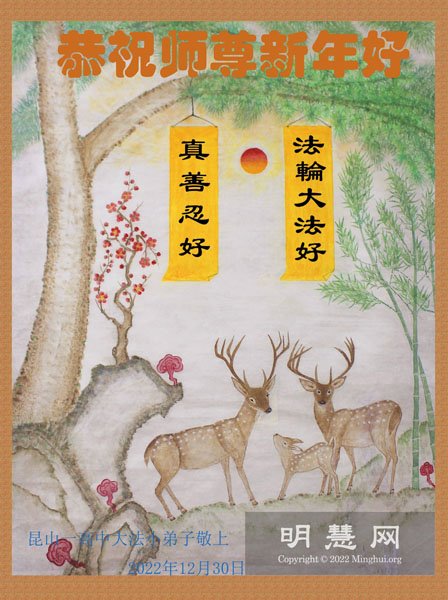 恭祝师尊新年好
法輪大法好
真善忍好
昆山一高中大法小弟子敬上
2022年12月30日
明慧网
Copyright © 2022 Minghui.org